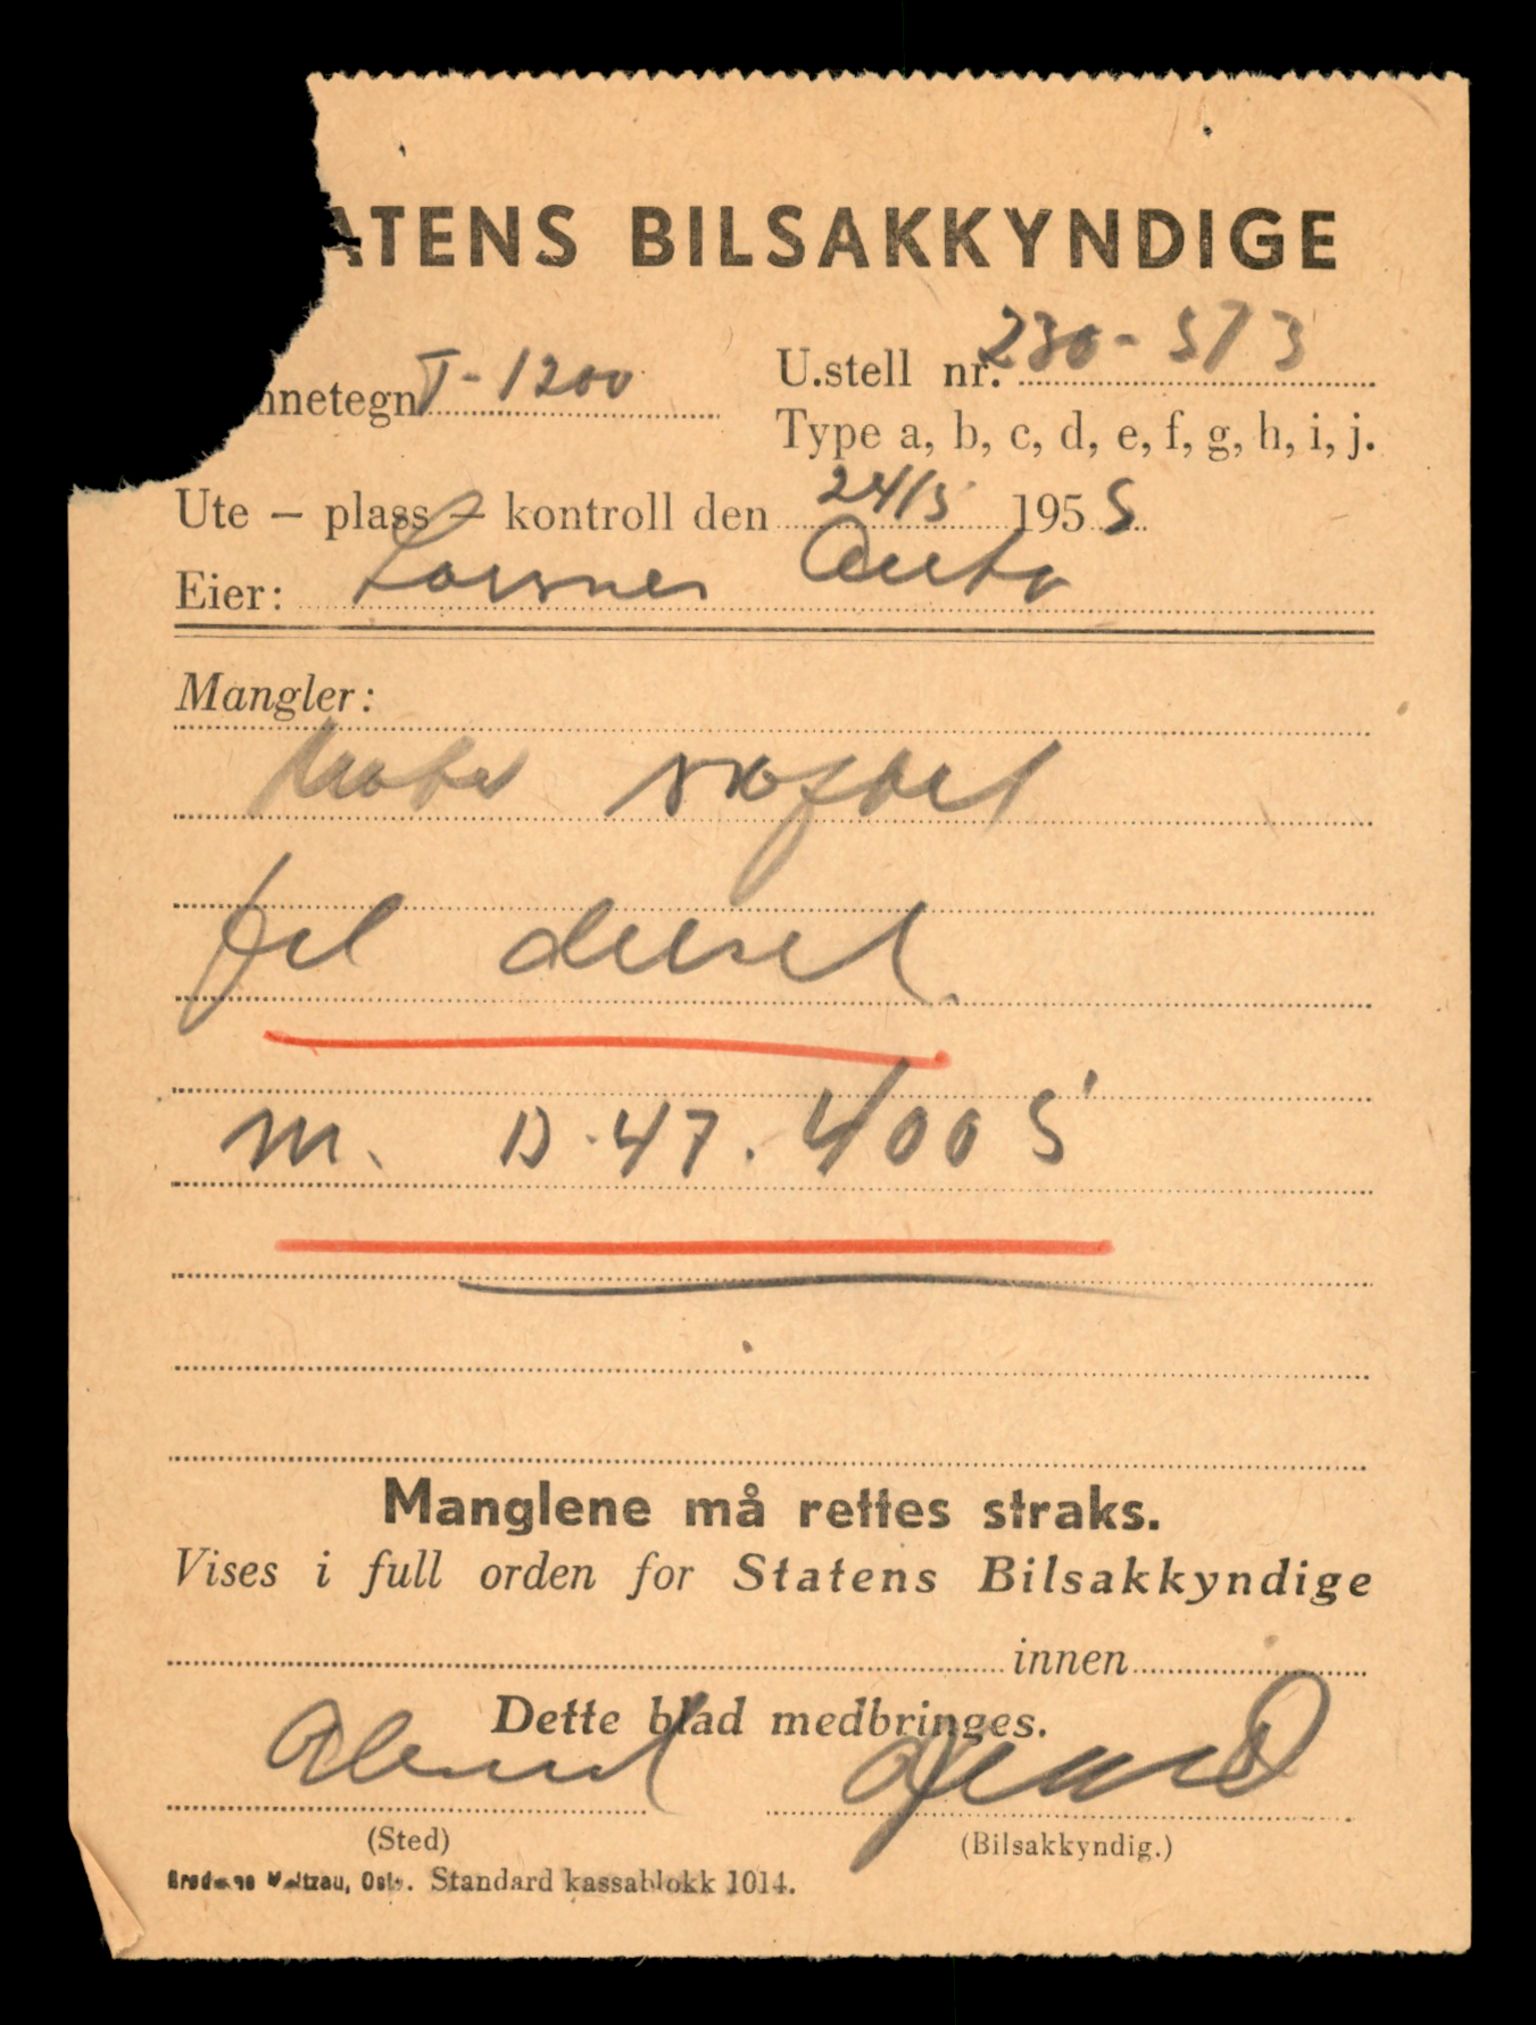 ATENS BILSAKKYNDIGE
nnetegn T-1200
U.stell nr. 230-573
Type a, b, c, d, e, f, g, h, i, j.
Ute – plass – kontroll den 24/5 1955
Eier: Auto
Mangler:
Motor skiftet
til diesel.
m. D.47.4005
Manglene må rettes straks.
Vises i full orden for Statens Bilsakkyndige
innen
Dette blad medbringes.
Ålesund
(Sted)
(Bilsakkyndig.)
Brødrene Maltzau, Oslo. Standard kassablokk 1014.